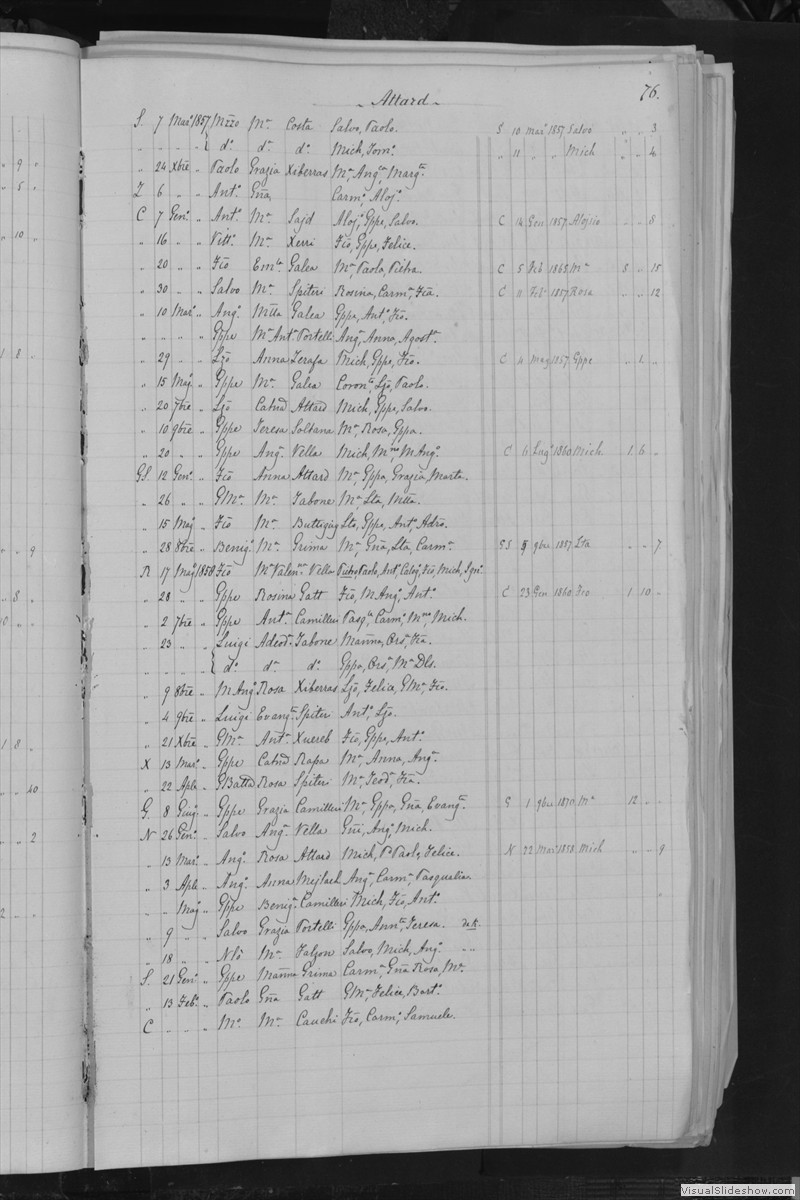 76.
Attard
S. 7 Mar.° 1857 Mzzo M.a Costa Salvo, Paolo. S 10 Mar.° 1857 Salvo „ „ 3
„ „ „ „ { d.° d.° d.° Mich, Tom.° „ 11 „ „ Mich „ „ 4
„ 24 Xbre „ Paolo Grazia Xiberras M.a, Ang.ca, Marg.ta
Z 6 „ „ Ant.° Gña Carm.°, Aloj.°
C 7 Gen.° „ Ant.° M.a Sajd Aloj.°, Gppe, Salvo. C 14 Gen 1857 Alojsio „ „ 8
„ 16 „ „ Vitt.° M.a Xerri Fco, Gppe, Felice.
„ 20 „ „ Fco Em.la Galea M.a, Paola, Pietra. C 5 Feb 1865 M.a 8 „ 15
„ 30 „ „ Salvo M.a Spiteri Rosina, Carm.a, Fca. C 11 Feb.° 1857 Rosa „ „ 12
„ 10 Mar.° „ Ang.° Mtta Galea Gppa, Ant.°, Fco.
„ „ „ „ Gppe M.a Ant.a Portelli Ang.a, Anna, Agost.a
„ 29 „ „ Ljo Anna Zerafa Mich, Gppe, Fco. C 4 Mag 1857 Gppe „ 1 „
„ 15 Mag. „ Gppe M.a Galea Coron.ta, Ljo, Paolo.
„ 20 7bre „ Ljo Catnd Attard Mich, Gppe, Salvo.
„ 10 9bre „ Gppe Teresa Soltana M.a, Rosa, Gppa.
„ 20 „ „ Gppe Ang.a Vella Mich, M.mo, M Ang.° C 6 Lug.° 1860 Mich 1 6 „
GS. 12 Gen.° „ Fco Anna Attard M.a, Gppa, Grazia, Marta.
„ 26 „ „ GMa. M.a Tabone M.a, Lta, Mtta.
„ 15 Mag „ Fco M.a Buttigieg Lta, Gppe, Ant.°, Adro.
„ 28 8bre „ Benig.° M.a Grima M.a, Gña, Lta, Carm.a GS 5 9bre 1857 Lta „ „ 7
R 17 Mag.° 1858 Fco M.a Valen.na Vella Pietro, Paolo, Ant.°, Calog.°, Fco, Mich, Ign.°
„ 28 „ „ Gppe Rosina Gatt Fco, M Ang.°, Ant.° C 23 Gen 1860 Fco 1 10 „
„ 2 7bre „ Gppe Ant.a Camilleri Pasq.le, Carm.°, M.mo, Mich.
„ 23 „ „ { Luigi Adeod.a Tabone Manna, Ors.a, Fca.
„ „ „ „ { d.° d.° d.° Gppa, Ors.a, M.a Dls.
„ 9 8bre „ M Ang.° Rosa Xiberras Ljo, Felice, GMa., Fco.
„ 4 9bre „ Luigi Evang.ta Spiteri Ant.°, Ljo.
„ 21 Xbre „ GMa. Ant.a Xuereb Fco, Gppe, Ant.°
X 13 Mar.° „ Gppe Catnd Rapa M.a, Anna, Ang.a
„ 22 Aple „ GBatta Rosa Spiteri M.a, Teod.a, Fca.
G. 8 Giug.° „ Gppe Grazia Camilleri M.a, Gppa, Gña, Evang.ta G 1 9bre 1870 M.a 12 „ „
N 26 Gen.° „ Salvo Ang.a Vella Gni, Ang.°, Mich.
„ 13 Mar.° „ Ang.° Rosa Attard Mich, P. Paolo, Felice. N 22 Mar.° 1858 Mich „ „ 9
„ 3 Aple „ Ang.° Anna Mejlach Ang.a, Carm.a, Pasqualina
„ „ Mag. „ Gppe Benig.a Camilleri Mich, Fco, Ant.°
„ 9 „ „ Salvo Grazia Portelli Gppa, Ann.ta, Teresa.
„ 18 „ „ Nlò M.a Falzon Salvo, Mich, Ang.°
S. 21 Gen.° „ Gppe Manna Grima Carm.a, Gña Rosa, M.a
„ 13 Feb.° „ Paolo Gña Gatt GMa., Felice, Bart.°
C „ „ „ M.° M.a Cauchi Fco, Carm.°, Samuele.
VisualSlideshow.com